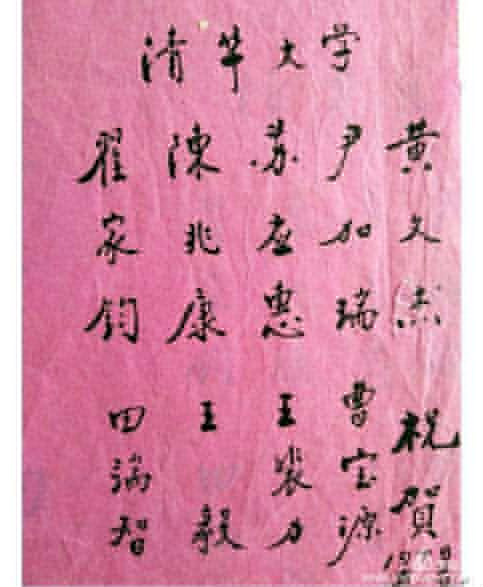 清华大学
翟家钧 田端智
陳兆康 王毅
苏应惠 王力
尹加瑞 曹宝源
黄文杰 祝賀